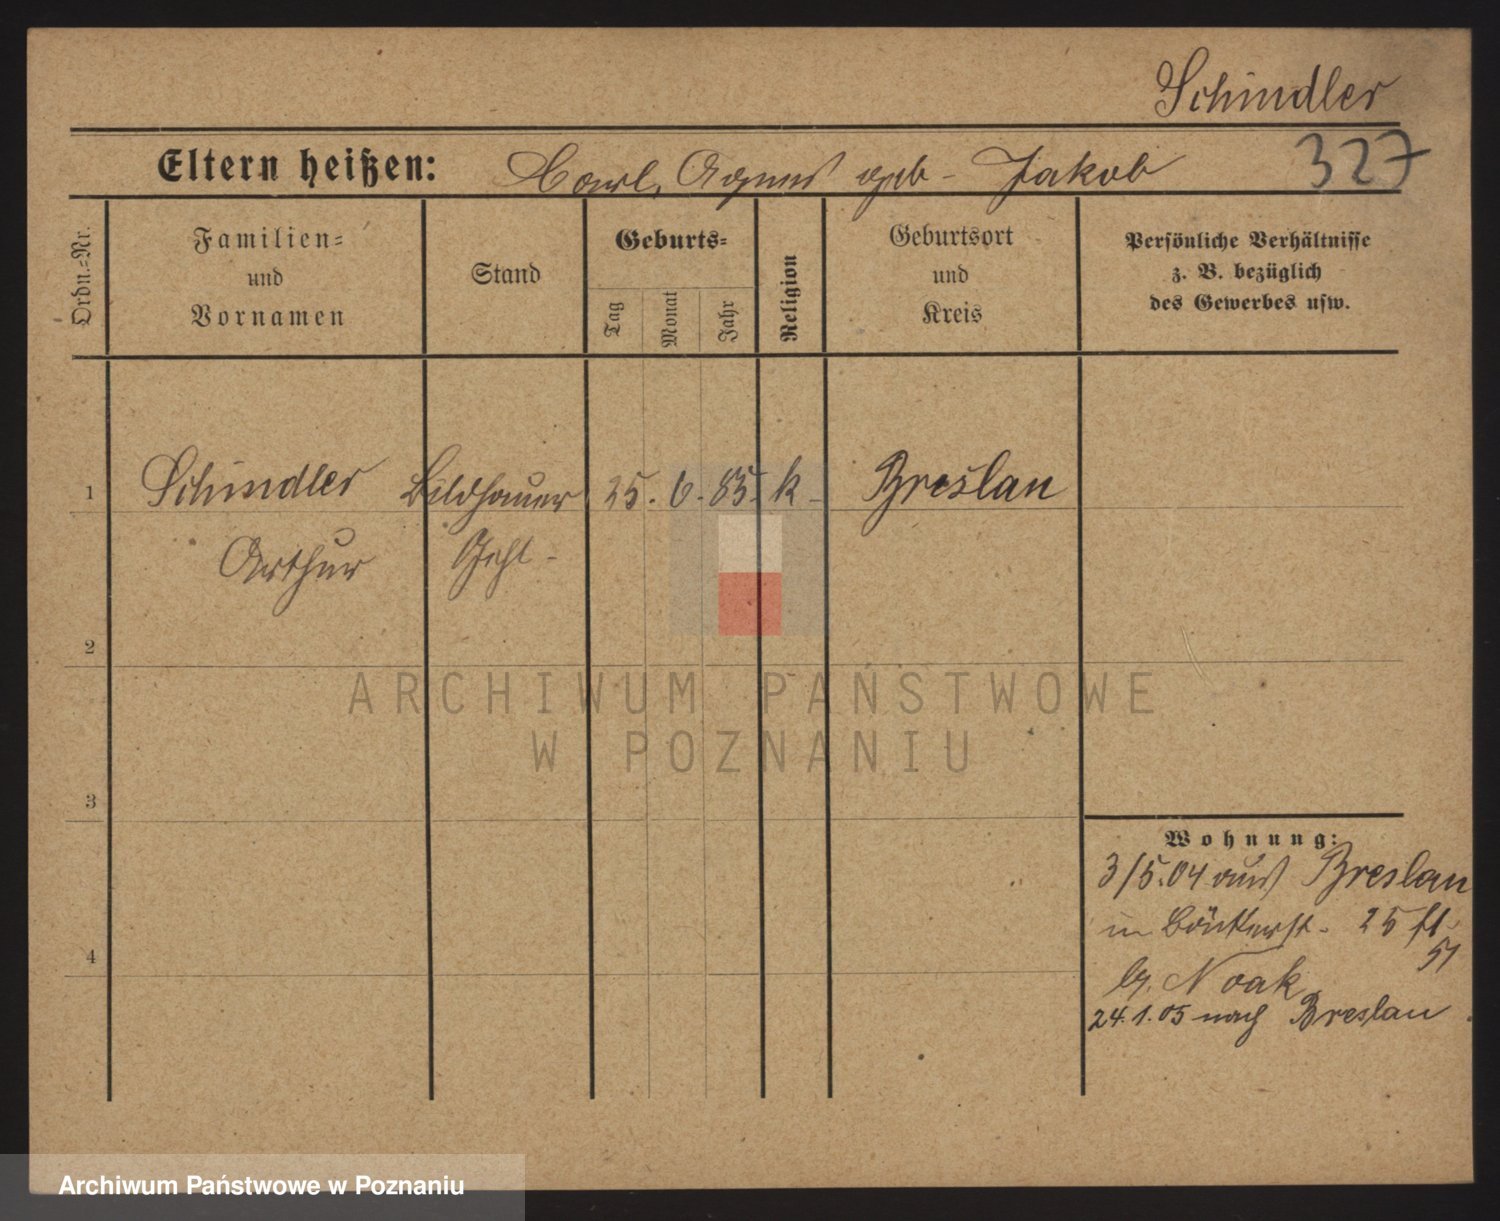 Schindler
Eltern heißen: Carl, Agnes geb. Jakob 327
Ordn.-Nr.
Familien-
und
Vornamen
Stand
Geburts-
Tag
Monat
Jahr
Religion
Geburtsort
und
Kreis
Persönliche Verhältnisse
z. B. bezüglich
des Gewerbes usw.
1 Schindler Bildhauer 25. 6. 85. k. Breslau
Arthur Geh.
2
3
4
ARCHIWUM PAŃSTWOWE
W POZNANIU
Wohnung:
3/5.04 aus Breslau
in Bäckerst. 25
51
b. Noak
24.1.05 nach Breslau.
Archiwum Państwowe w Poznaniu